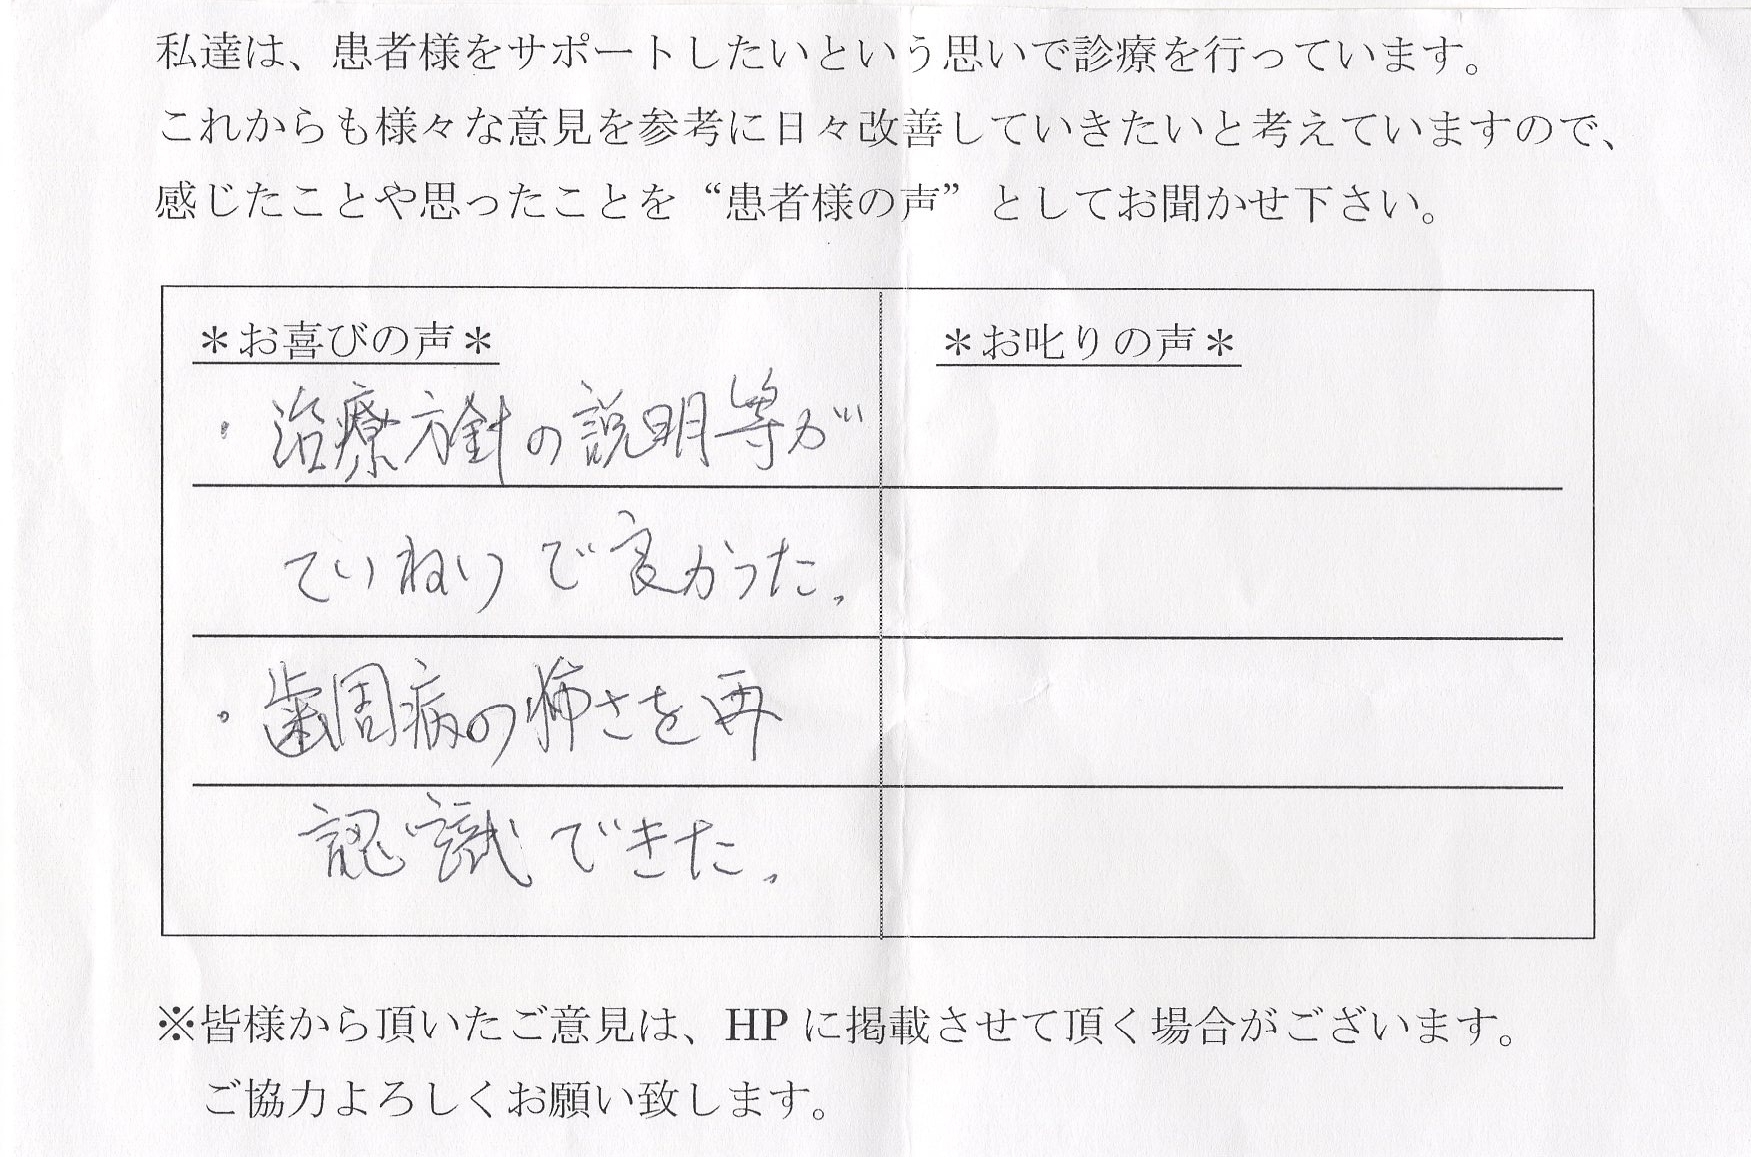 私達は、患者様をサポートしたいという思いで診療を行っています。
これからも様々な意見を参考に日々改善していきたいと考えていますので、
感じたことや思ったことを“患者様の声”としてお聞かせ下さい。
＊お喜びの声＊
＊お叱りの声＊
・治療方針の説明等が
ていねいで良かった。
・歯周病の怖さを再
認識できた。
※皆様から頂いたご意見は、HPに掲載させて頂く場合がございます。
ご協力よろしくお願い致します。